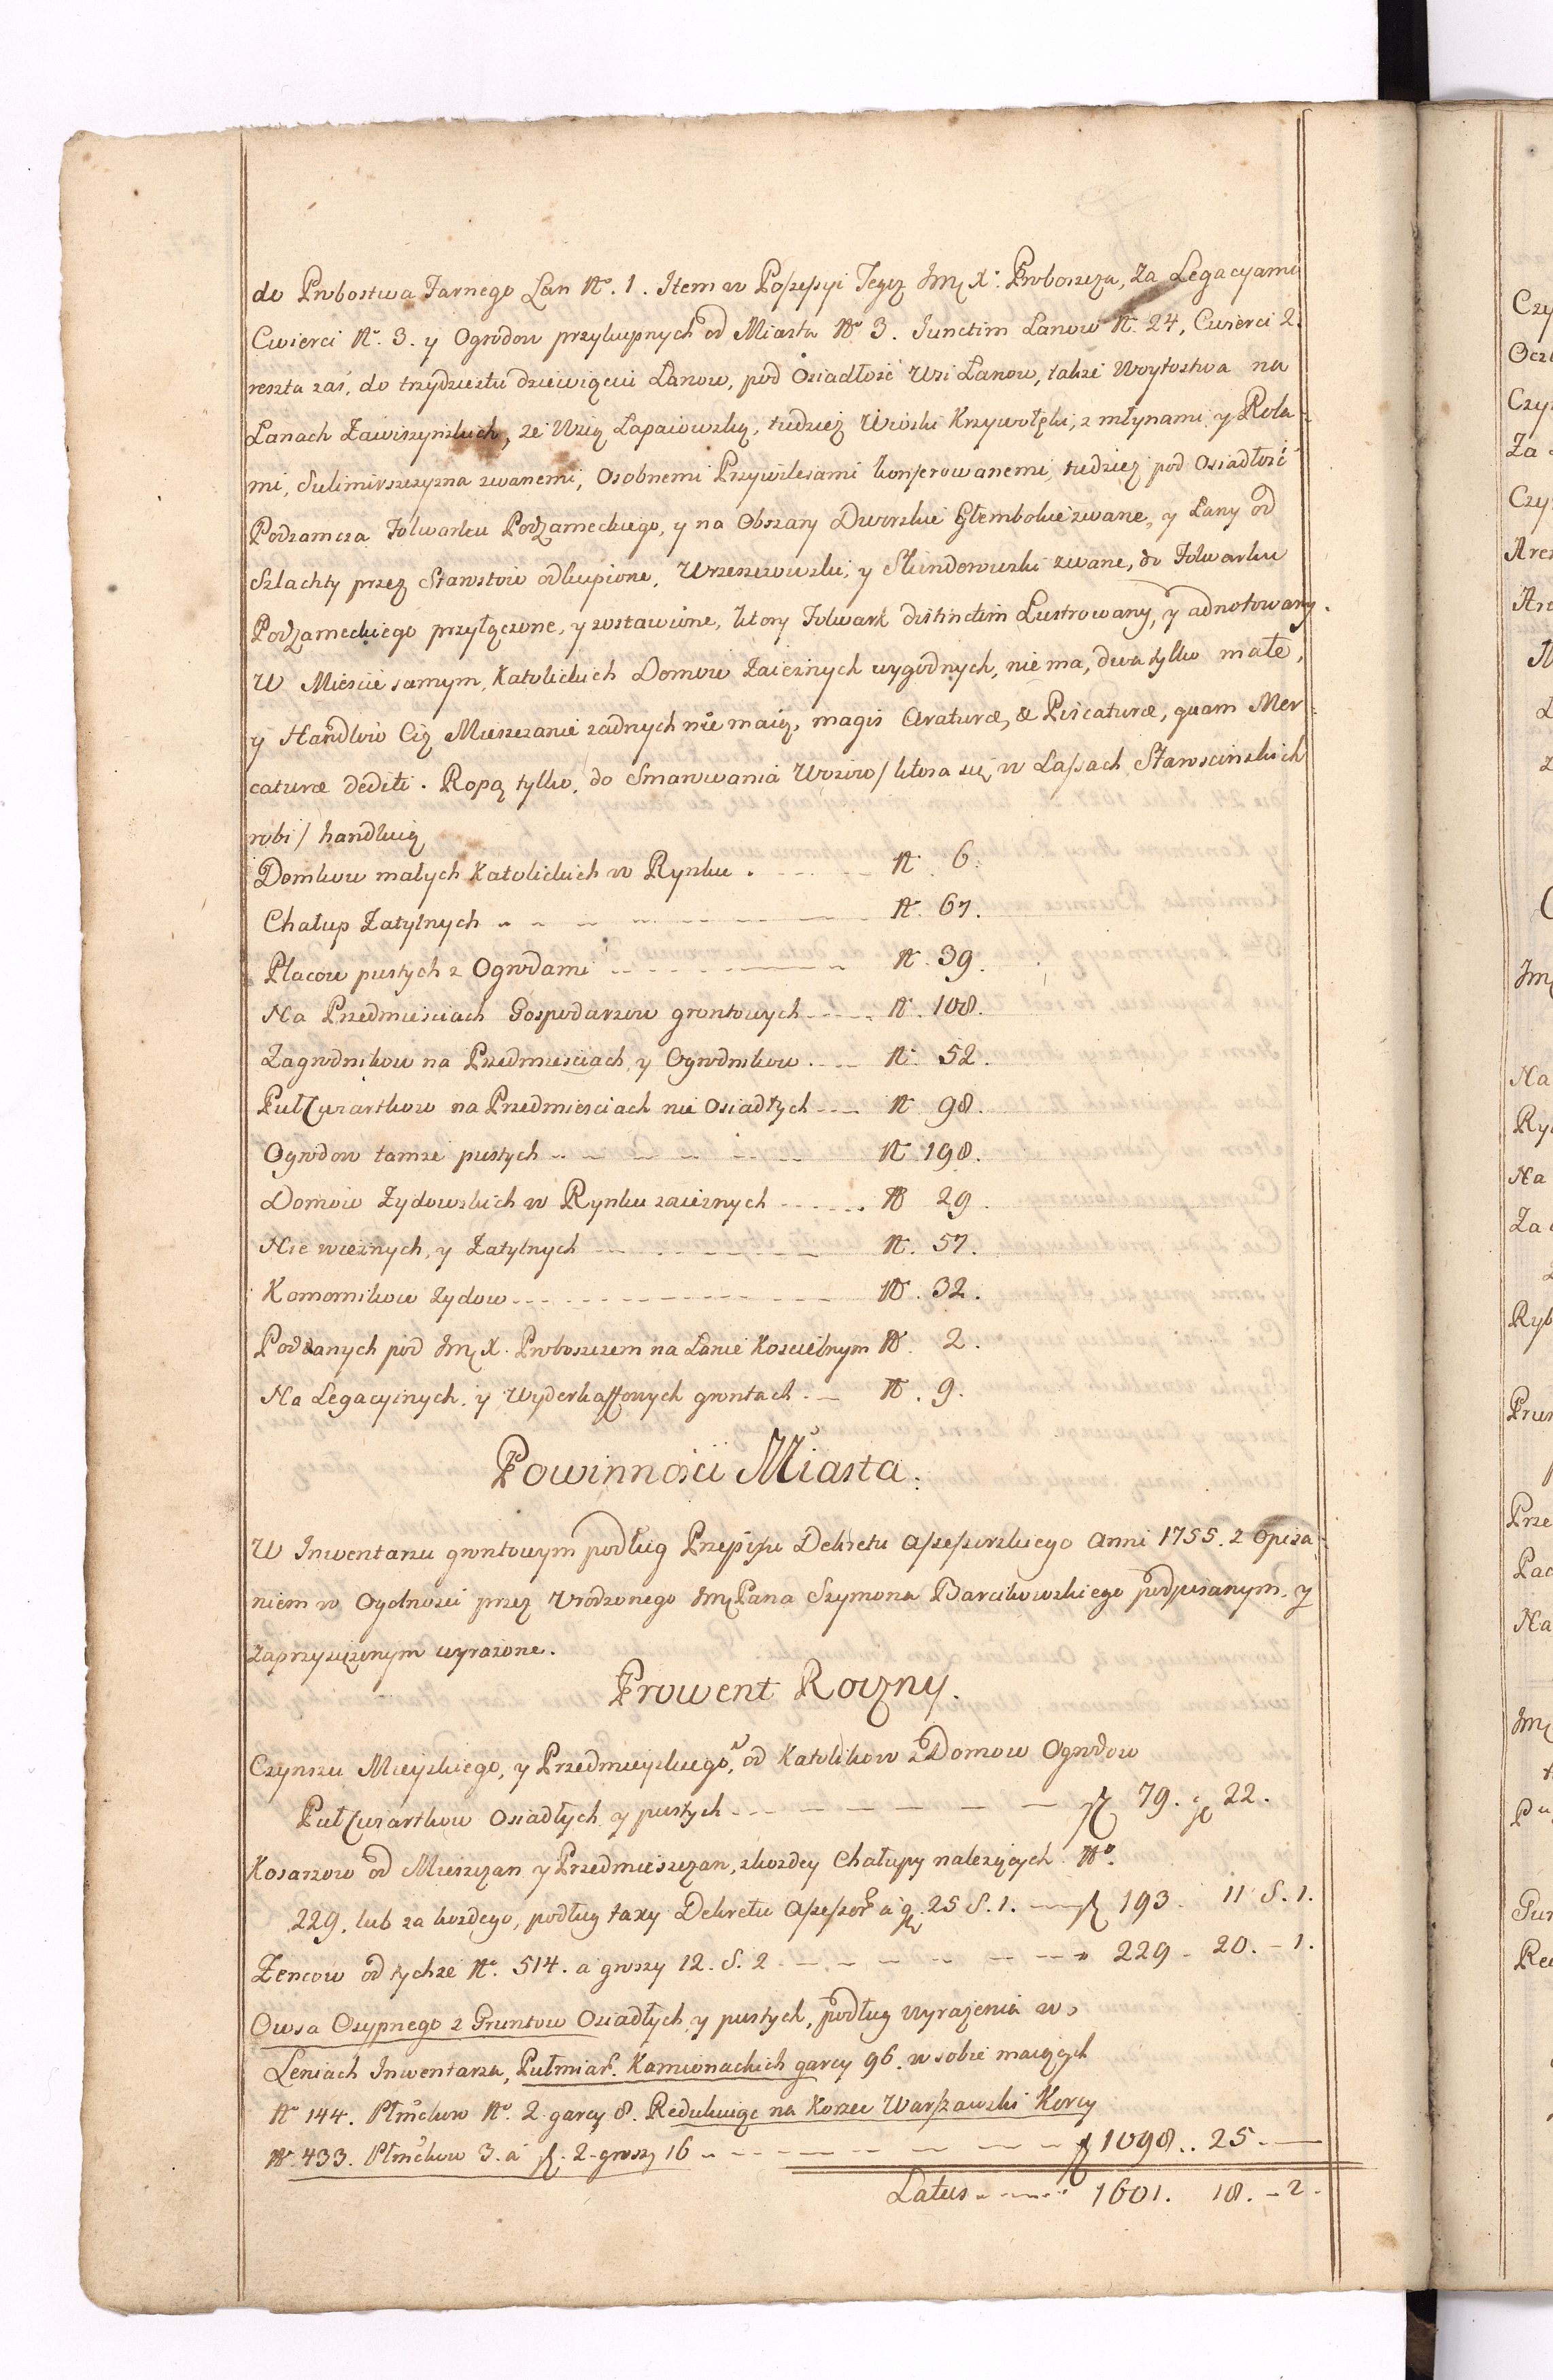 do Probostwa Farnego Łan No. 1. Item w Possessyi Tegoż Jmci X: Proboszcza, Za Legacyami
Cwierci No. 3. y Ogrodow przykupnych od Miasta No 3. Junctim Łanow No. 24, Cwierci 2.
reszta zaś, do trzydziestu dziewiąciu Łanow, pod Osiadłość Wsi Łanow, także Woytostwa na
Łanach Zawiszynskich, ze Wsią Łapaiowską, tudzież Wioski Krzywołęki, z młynami y Rola-
mi, Sulimirszczyzna zwanemi, Osobnemi Przywilesami konferowanemi, tudzież pod Osiadłość
Podzamcza Folwarku Podzameckiego, y na Obszary Dworskie Głembokie zwane, y Łany od
Szlachty przez Starostow odkupione, Wrzeszczowski, y Skinderowski zwane, do Folwarku
Podzameckiego przyłączone, y zostawione, ktory Folwark distinctim Lustrowany, y adnotowany.
W Miescie samym, Katolickich Domow Zaieznych wygodnych, nie ma, dwa tylko małe,
y Handlow Ciż Mieszczanie zadnych nie maią, magis Araturæ, & Piscaturæ, quam Mer-
caturæ dediti. Ropą tylko, do Smarowania Wozow / ktora się w Lassach Starościnskich
robi / handluią
Domkow małych Katolickich w Rynku . - - - - No. 6.
Chałup Zatylnych - - - - - - No. 67.
Placow pustych z Ogrodami - - - - - No. 39.
Na Przedmiesciach Gospodarzow grontowych - - - No. 108.
Zagrodnikow na Przedmiesciach, y Ogrodnikow. - - No. 52.
Puł Cwiartkow na Przedmiesciach nie Osiadłych - - No 98.
Ogrodow tamże pustych - - - - - - No 198.
Domow Zydowskich w Rynku zaieznych - - - - No 29.
Nie wieznych, y Zatylnych - - - - - No. 57.
Komornikow Zydow - - - - - - - No. 32.
Poddanych pod Jmci X. Proboszczem na Łanie Koscielnym No. 2.
Na Legacyinych, y Wyderkaffowych grontach. - No. 9.
Powinnosci Miasta.
W Inwentarzu grontowym podług Przepisu Dekretu Assessorskiego Anni 1755. z Opisa-
niem w Ogolnosci przez Urodzonego Jmci Pana Szymona Barcikowskiego podpisanym, y
zaprzysiężonym wyrazone.
Prowent Roczny.
Czynszu Mieyskiego, y Przedmieyskiego, od Katolikow z Domow Ogrodow
Puł Cwiartkow Osiadłych y pustych - - - - - - - zł 79. gr 22.
Kosarzow od Mieszczan y Przedmieszczan, z kozdey Chałupy nalezących No.
229. lub za kozdego, podług taxy Dekretu Assessor. a gr. 25 S. 1. - - zł 193. 11 S. 1.
Zencow od tychze No. 514. a groszy 12. S. 2 - - - - - - - - 229 - 20. - 1.
Owsa Osypnego z Gruntow Osiadłych y pustych, podług wyrazenia w
Leniach Inwentarza, Pułmiar. Kamionackich garcy 96. w sobie maiących
No 144. Płmckow No. 2 garcy 8. Redukuiąc na Korzec Warszawski Korcy
No. 433. Płmckow 3. a zł. 2 groszy 16 - - - - - - - - - zł 1098.. 25. -
Latus - - - - 1601. 18. - 2.